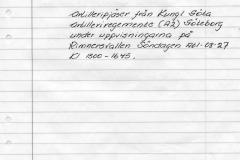 Artilleripjäser från Kungl Göta
Artilleriregemente (A2) Göteborg
under uppvisningarna på
Rimnersvallen Söndagen 2001-08-27
Kl 1300-1645.